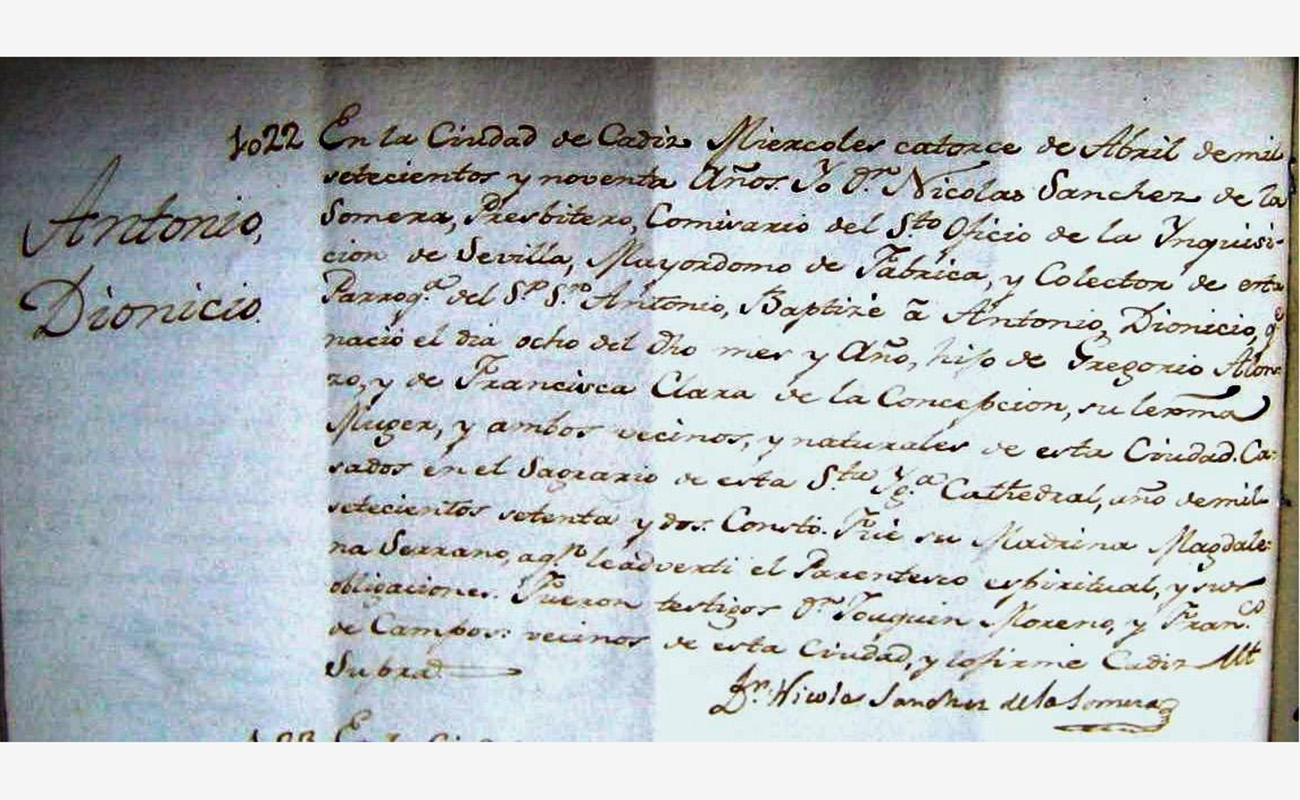 Antonio,
Dionicio.
1022 En la Ciudad de Cadiz Miercoles catorce de Abril de mil
setecientos y noventa Años. Yo Dn. Nicolas Sanchez de la
Somera, Presbitero, Comisario del Sto. Oficio de la Ynquisi-
cion de Sevilla, Mayordomo de Fabrica, y Colector de esta
Parroqa. del Sr. Sn. Antonio, Baptizé â Antonio, Dionicio, qe.
nació el dia ocho del dho mes y Año, hijo de Gregorio Alon-
zo, y de Francisca Clara de la Concepcion, su lexma
Muger, y ambos vecinos, y naturales de esta Ciudad. Ca-
sados en el Sagrario de esta Sta. Yga. Cathedral, año de mil
setecientos setenta y dos. Constó. Fué su Madrina Magdale-
na Serrano, aqn. le adverti el Parentesco espiritual, y sus
obligaciones. Fueron testigos Dn. Joaquin Moreno, y Franco.
de Campos: vecinos de esta Ciudad, y lo firmé Cadiz Ut
Supra
Dn. Nicolas Sanchez de la Somera